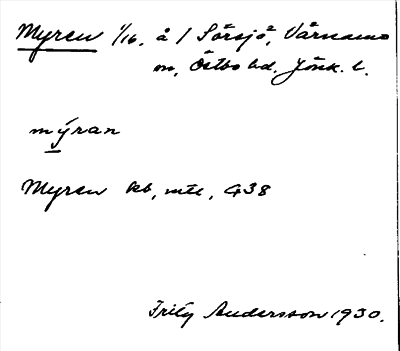 Myren 1/16, å / Sörsjö, Värnamo
sn, Östbo hd. Jönk. l.
mýran
Myren kb, mtl, G38
Fritz Andersson 1930.